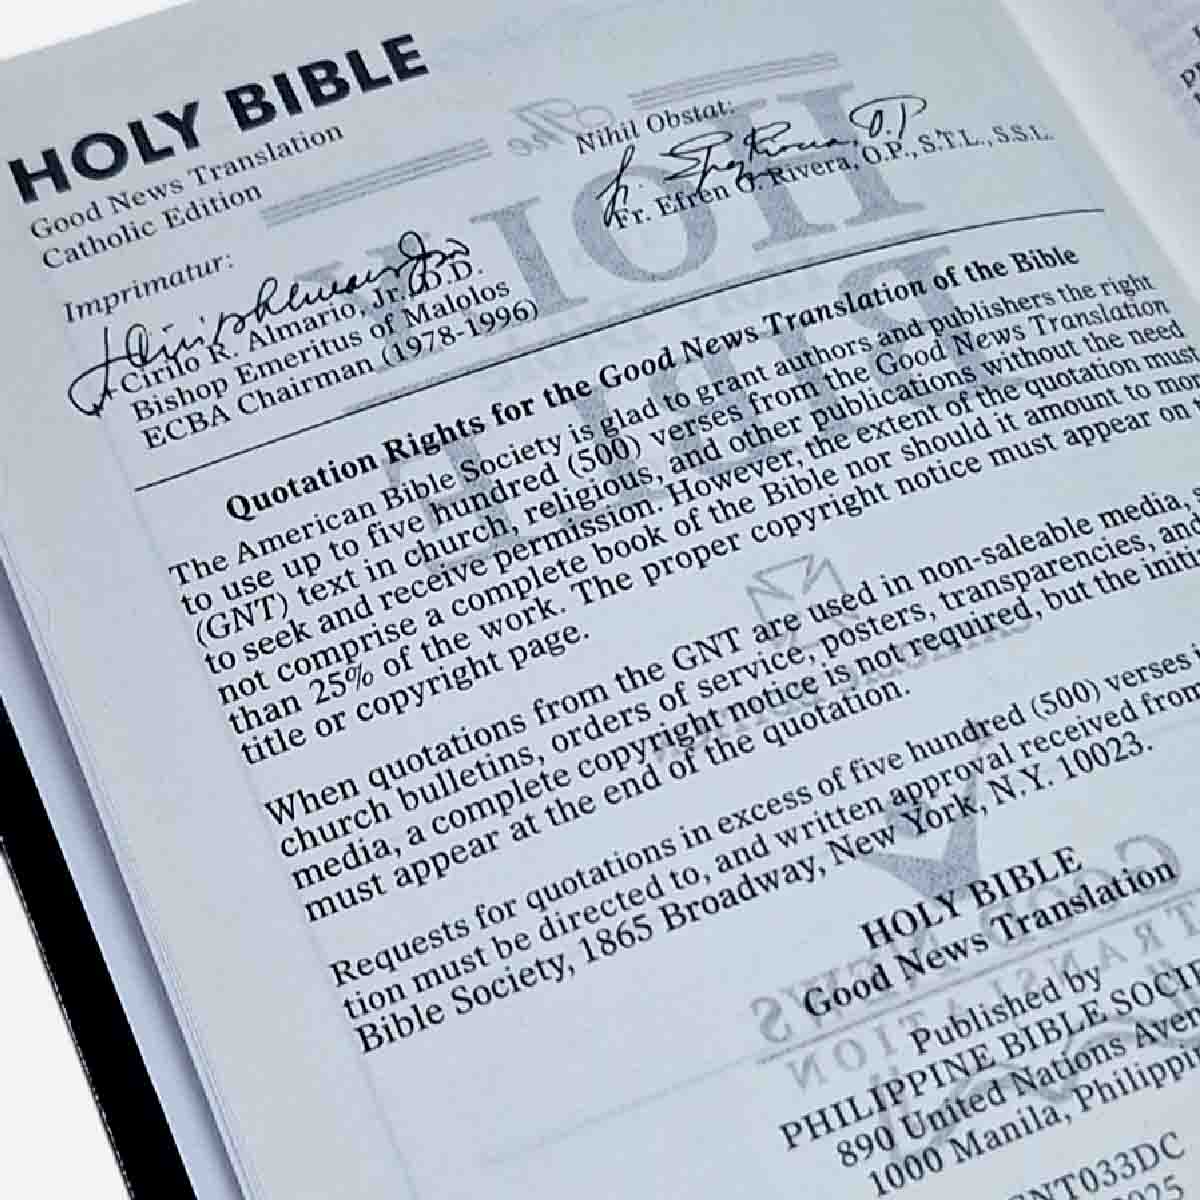 HOLY BIBLE
Good News Translation
Catholic Edition
Nihil Obstat:
Fr. Efren O. Rivera, O.P., S.T.L., S.S.L.
Imprimatur:
Cirilo R. Almario, Jr. D.D.
Bishop Emeritus of Malolos
ECBA Chairman (1978-1996)
Quotation Rights for the Good News Translation of the Bible
The American Bible Society is glad to grant authors and publishers the right
to use up to five hundred (500) verses from the Good News Translation
(GNT) text in church, religious, and other publications without the need
to seek and receive permission. However, the extent of the quotation must
not comprise a complete book of the Bible nor should it amount to mor
than 25% of the work. The proper copyright notice must appear on
title or copyright page.
When quotations from the GNT are used in non-saleable media,
church bulletins, orders of service, posters, transparencies, and
media, a complete copyright notice is not required, but the initi
must appear at the end of the quotation.
Requests for quotations in excess of five hundred (500) verses i
tion must be directed to, and written approval received from
Bible Society, 1865 Broadway, New York, N.Y. 10023.
HOLY BIBLE
Good News Translation
Published by
PHILIPPINE BIBLE SOCIE
890 United Nations Aven
1000 Manila, Philippi
NT033DC
025